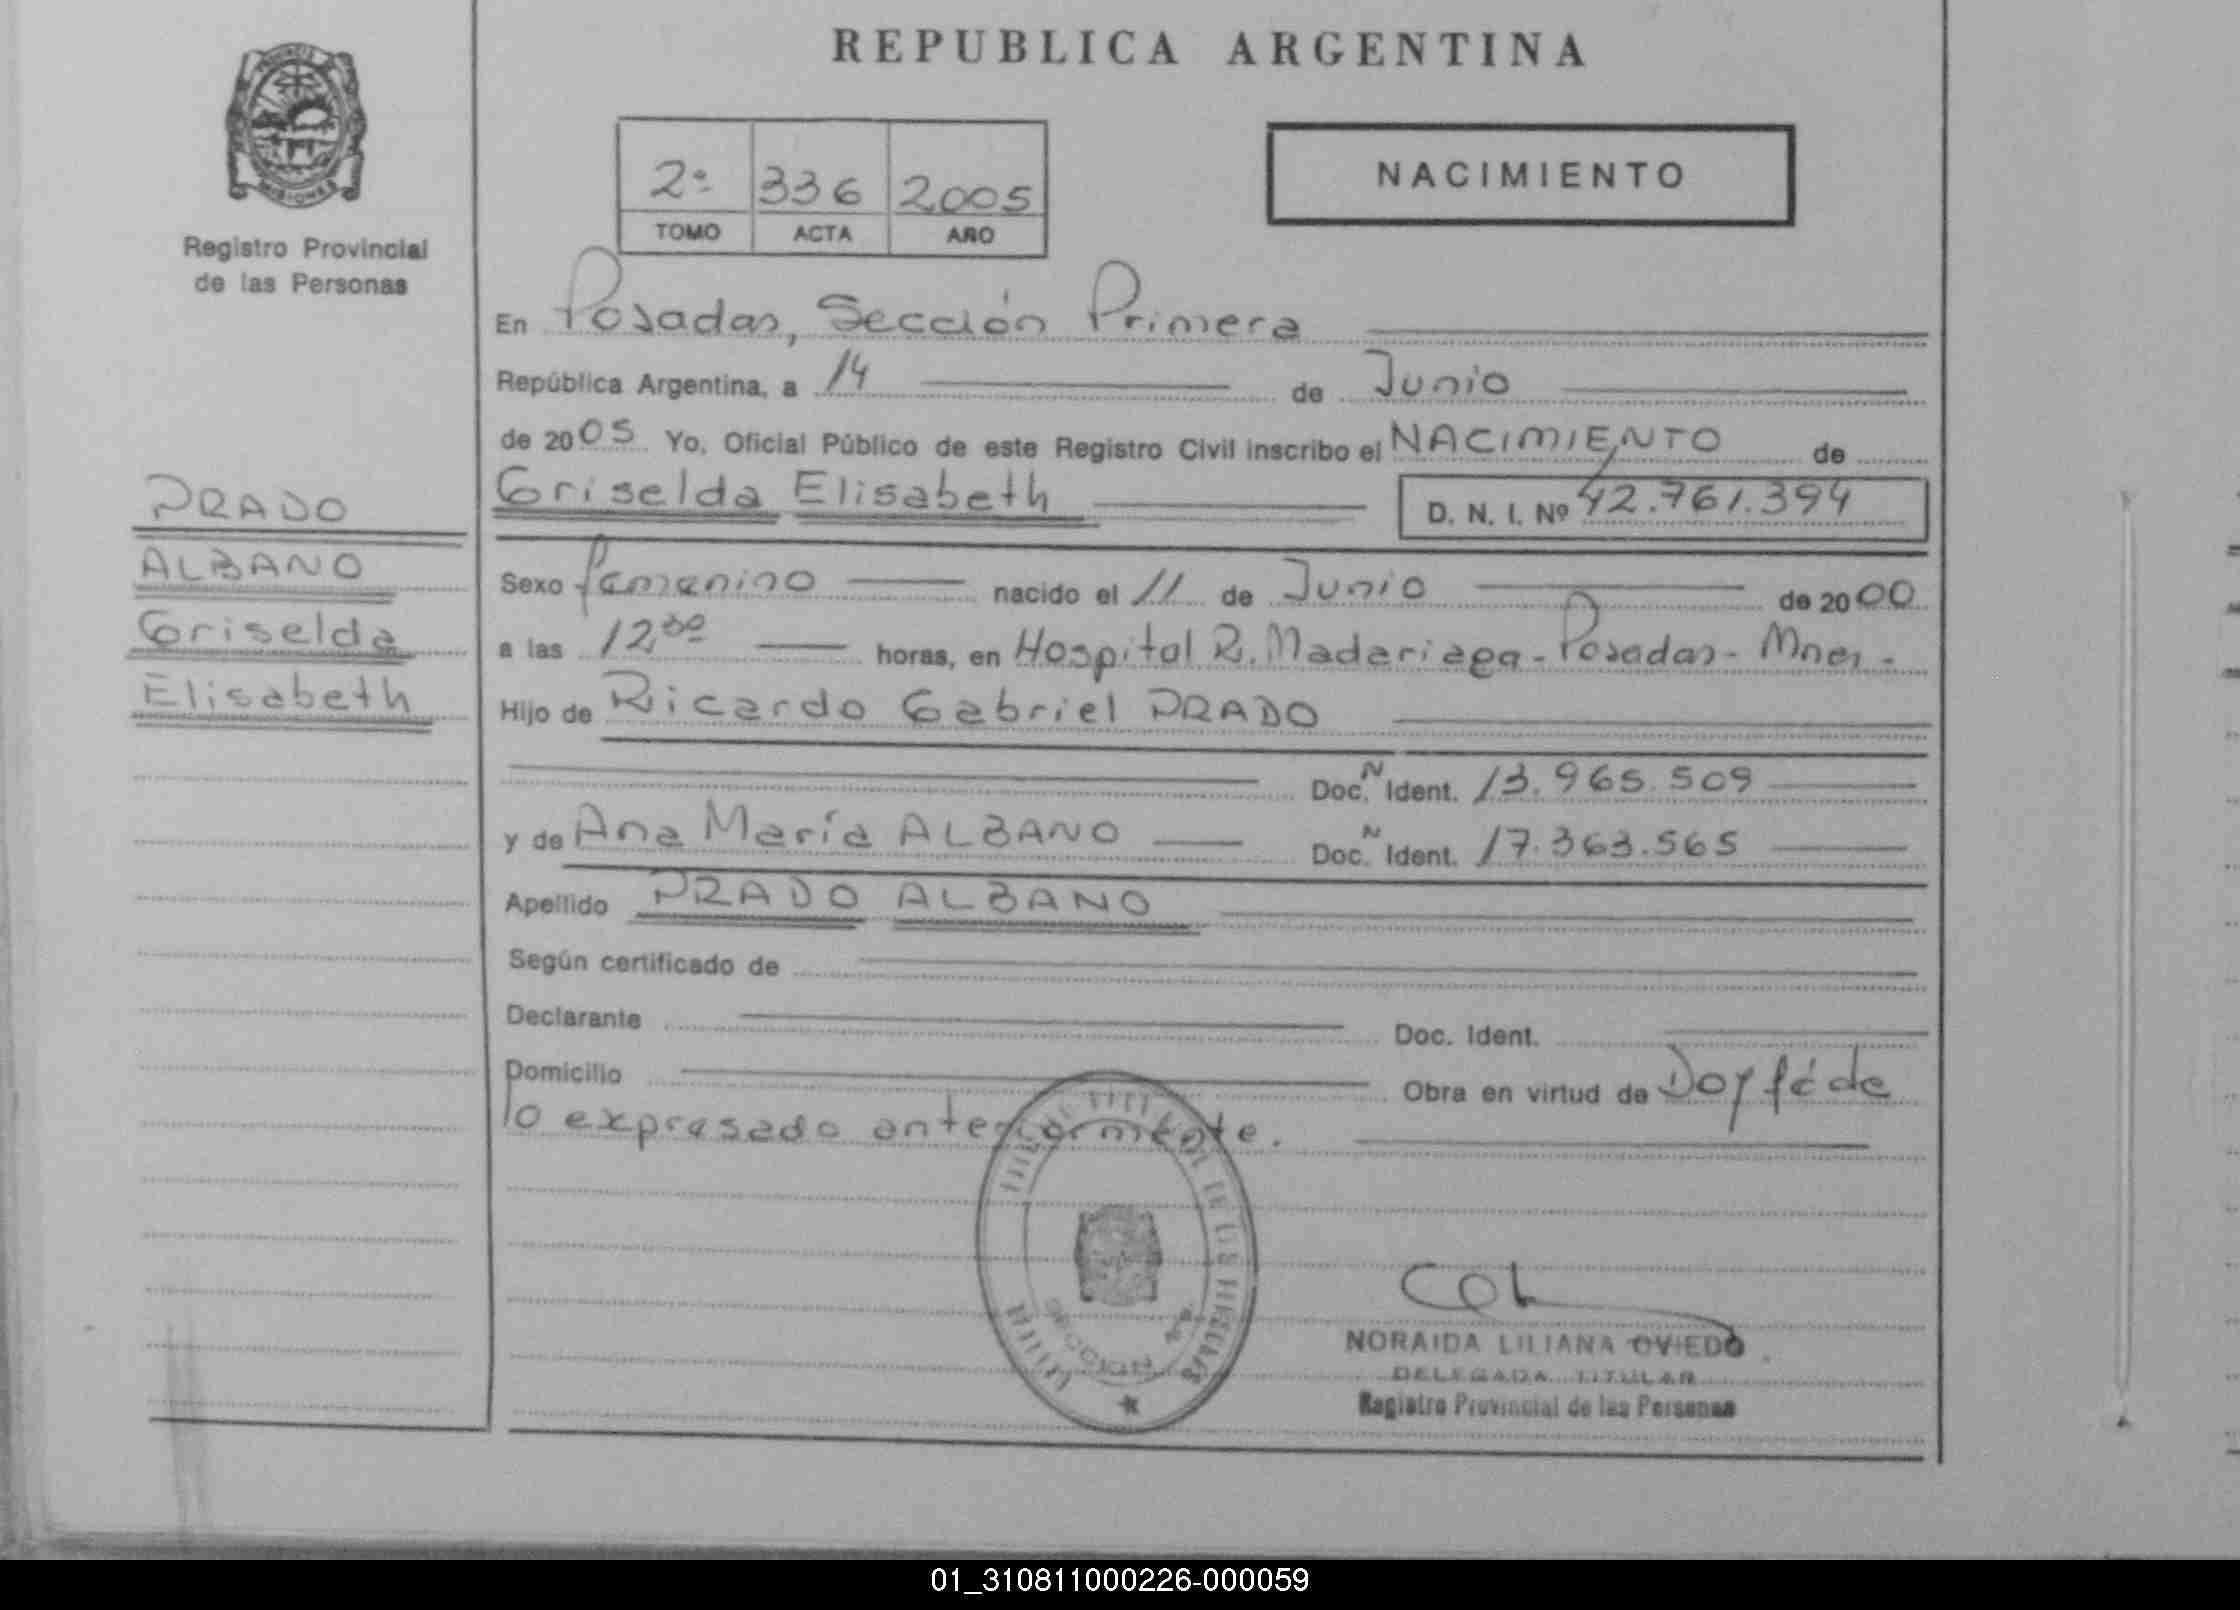 REPUBLICA ARGENTINA
MISIONES
Registro Provincial
de las Personas
2º 336 2005
TOMO ACTA AÑO
NACIMIENTO
En Posadas, Sección Primera
República Argentina, a 14 de Junio
de 2005 Yo, Oficial Público de este Registro Civil inscribo el NACIMIENTO de
Griselda Elisabeth D. N. I. Nº 42.761.394
PRADO
ALBANO
Griselda
Elisabeth
Sexo femenino nacido el 11 de Junio de 2000
a las 12,30 horas, en Hospital R. Madariaga - Posadas - Mnes -
Hijo de Ricardo Gabriel PRADO
Doc. N Ident. 13.965.509
y de Ana María ALBANO Doc. N Ident. 17.363.565
Apellido PRADO ALBANO
Según certificado de
Declarante Doc. Ident.
Domicilio Obra en virtud de Doy fé de
lo expresado anteriormente.
DE LAS PERSONAS
SECCION
NORAIDA LILIANA OVIEDO
DELEGADA TITULAR
Registro Provincial de las Personas
01_310811000226-000059